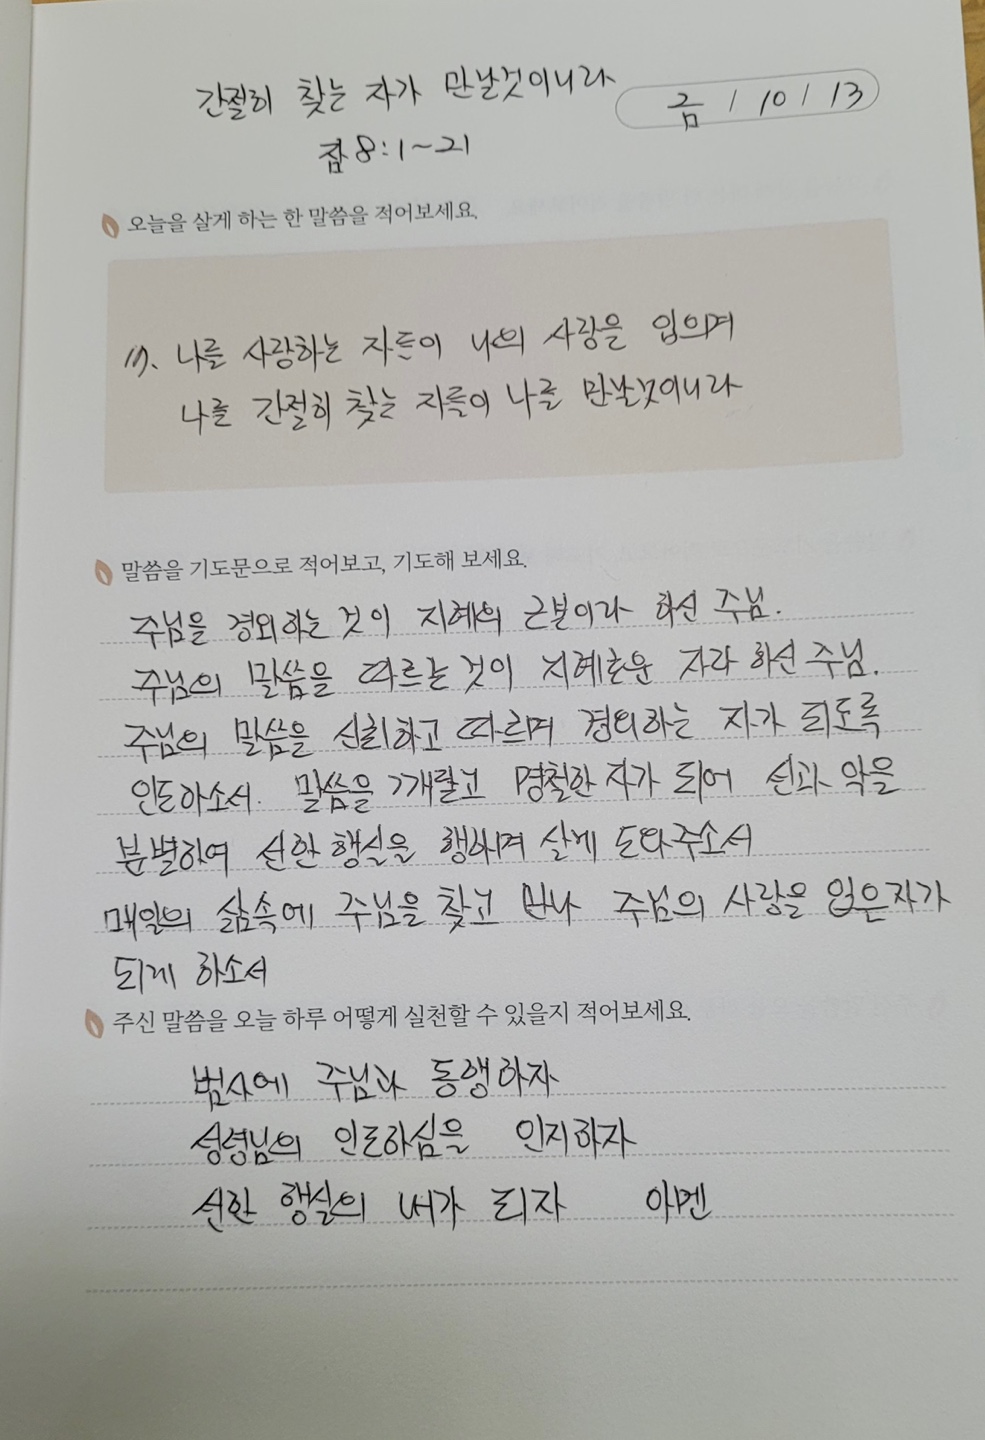 간절히 찾는 자가 만날것이니라
금 / 10 / 13
잠 8:1~21
오늘을 살게 하는 한 말씀을 적어보세요.
17. 나를 사랑하는 자들이 나의 사랑을 입으며
나를 간절히 찾는 자들이 나를 만날것이니라
말씀을 기도문으로 적어보고, 기도해 보세요.
주님을 경외하는 것이 지혜의 근본이라 하신 주님.
주님의 말씀을 따르는 것이 지혜로운 자라 하신 주님.
주님의 말씀을 신뢰하고 따르며 경외하는 자가 되도록
인도하소서. 말씀을 깨닫고 명철한 자가 되어 선과 악을
분별하여 선한 행실을 행하며 살게 도와주소서
매일의 삶속에 주님을 찾고 만나 주님의 사랑을 입은자가
되게 하소서
주신 말씀을 오늘 하루 어떻게 실천할 수 있을지 적어보세요.
범사에 주님과 동행하자
성령님의 인도하심을 인지하자
선한 행실의 내가 되자 아멘